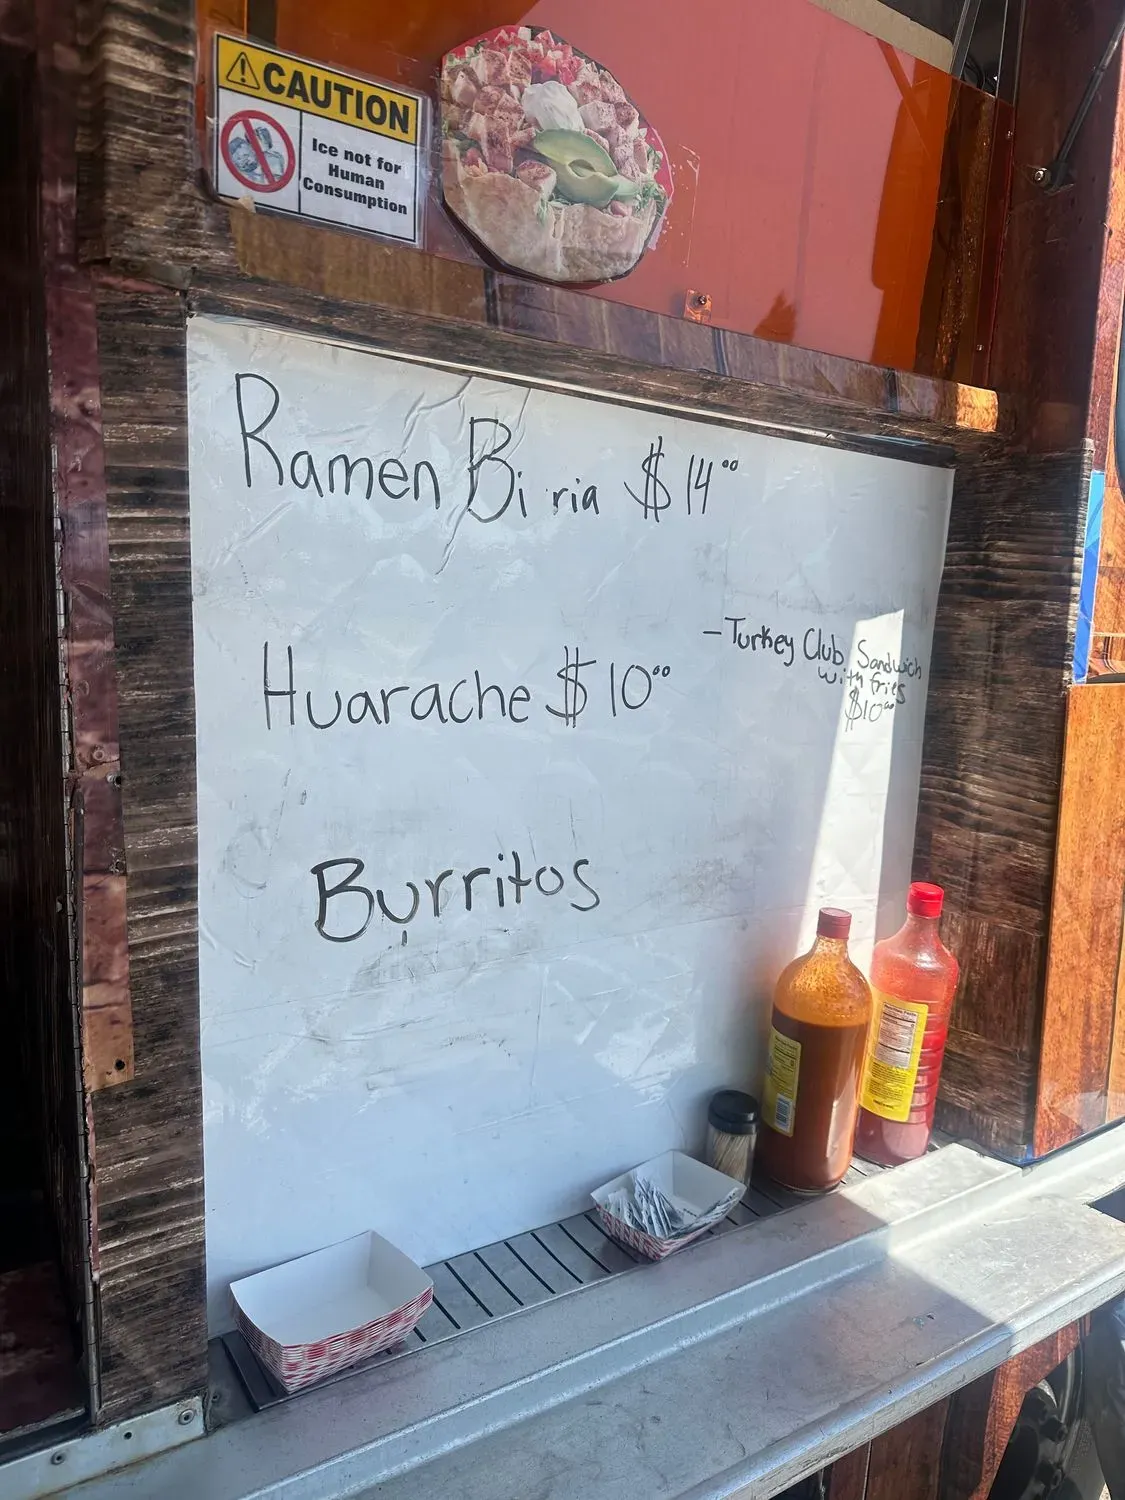 CAUTION
Ice not for
Human
Consumption
Ramen Biria $14⁰⁰
Huarache $10⁰⁰
-Turkey Club Sandwich
with fries
$10⁰⁰
Burritos